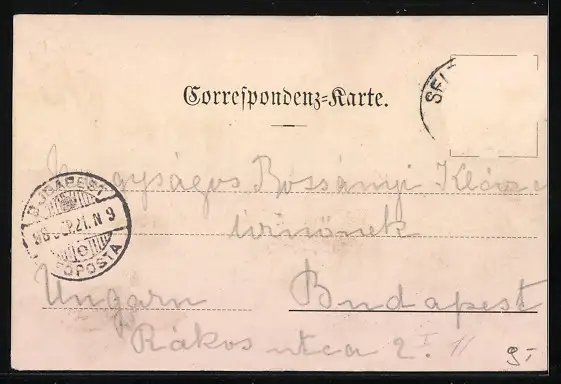 Correspondenz-Karte.
SEI
Nagyságos Bossányi Klára
úrnőnek
BUDAPEST
98 21. N 9
FŐPOSTA
Ungarn Budapest
Rákos utca 2 I 11
9.-